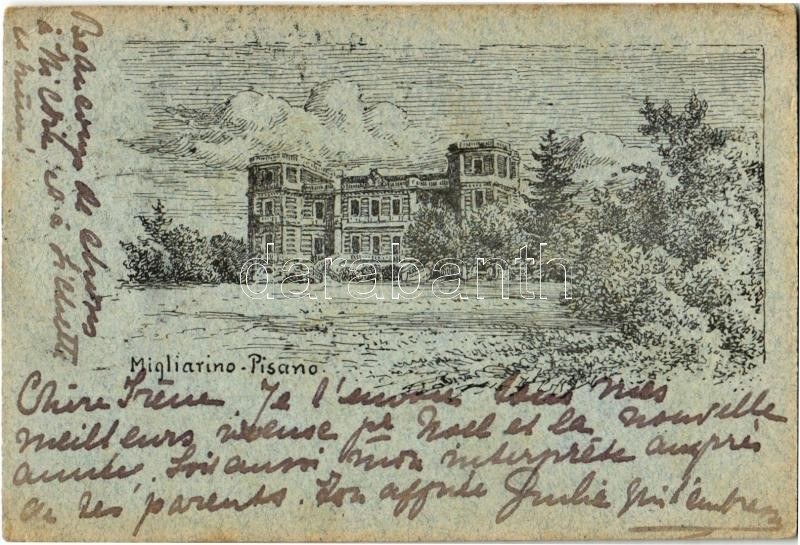 Beaucoup de choses
à
et à
Migliarino-Pisano.
darabanth
Chère Irène Je t'envoie tous mes
meilleurs pr Noel et la nouvelle
année. Sois aussi mon interprète auprès
de tes parents. Ton Julie qui t'embrasse